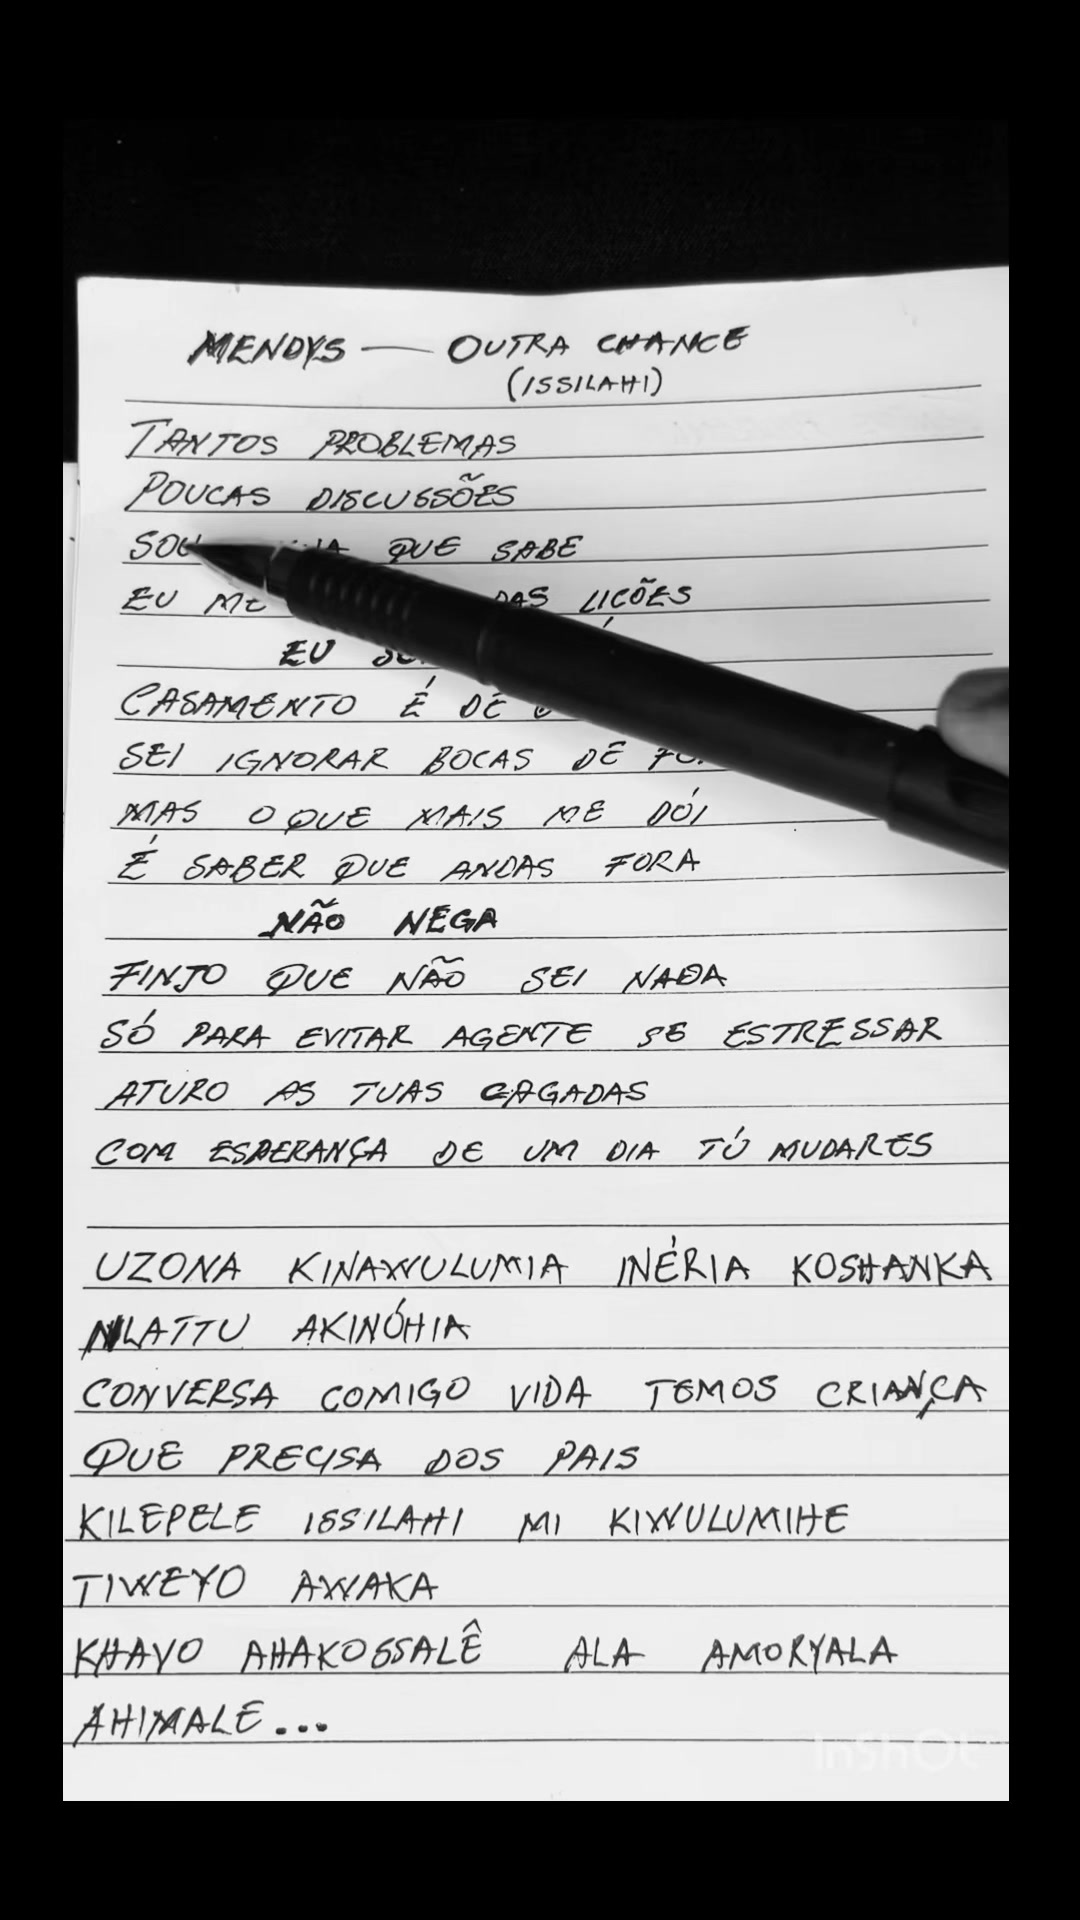 MENDYS — OUTRA CHANCE
(ISSILAHI)
TANTOS PROBLEMAS
POUCAS DISCUSSÕES
SOU QUE SABE
EU ME DAS LIÇÕES
EU
CASAMENTO É DE
SEI IGNORAR BOCAS DE
MAS O QUE MAIS ME DÓI
É SABER QUE ANDAS FORA
NÃO NEGA
FINJO QUE NÃO SEI NADA
SÓ PARA EVITAR AGENTE SE ESTRESSAR
ATURO AS TUAS CAGADAS
COM ESPERANÇA DE UM DIA TÚ MUDARES
UZONA KINAWULUMIA INÉRIA KOSHANKA
NLATTU AKINÓHIA
CONVERSA COMIGO VIDA TEMOS CRIANÇA
QUE PRECISA DOS PAIS
KILEPELE ISSILAHI MI KIWULUMIHE
TIWEYO AWAKA
KHAVO AHAKOSSALÊ ALA AMORYALA
AHIMALE...
InShOt